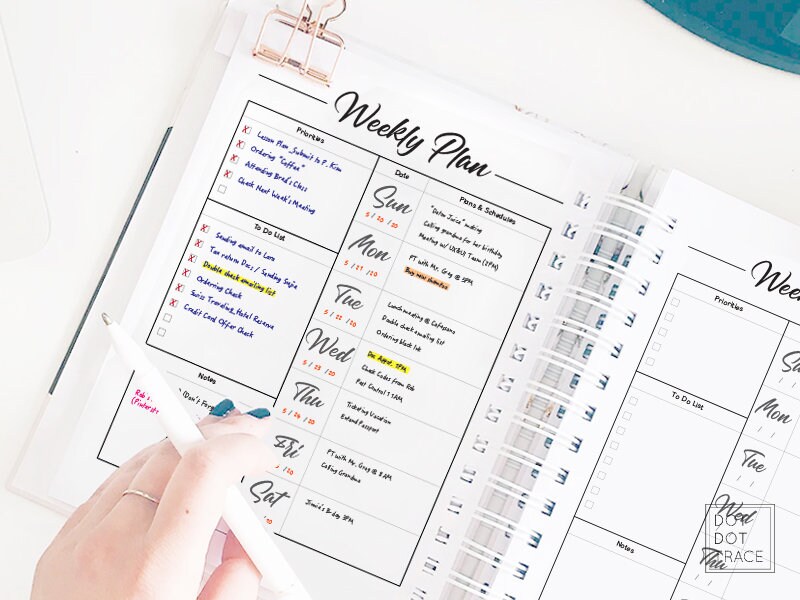 Weekly Plan
Priorities
X Lesson Plan Submit to P. Kim
X Ordering "Coffee"
X Attending Brad's Class
Check Next Week's Meeting
To Do List
X Sending email to Lora
X Tax return Docs / Sending
X Double check emailing list
X Ordering Check
X Swiss Traveling Hotel Reserve
X Credit Card Offer Check
Notes
(Don't
Rob's
Date
Plans & Schedules
Sun
5 / 20 / 20
"Detox Juice" making
Calling grandma for her birthday
Meeting w/ UX&UI Team (2PM)
Mon
5 / 21 / 20
PT with Mr. Greg @ 5PM
Buy new shampoo
Tue
5 / 22 / 20
Lunch meeting @
Double check emailing list
Ordering black ink
Wed
5 / 23 / 20
Doc Appt. 3PM
Check Codes from Rob
Pest Control 11AM
Thu
5 / 24 / 20
Ticketing Vacation
Extend Passport
Fri
/ 20
PT with Mr. Greg @ 8AM
Calling Grandma
Sat
/ 20
Jimin's B-day 3PM
Wee
Priorities
To Do List
Notes
Su
Mon
Tue
Wed
Thu
DO
DOT
GRACE